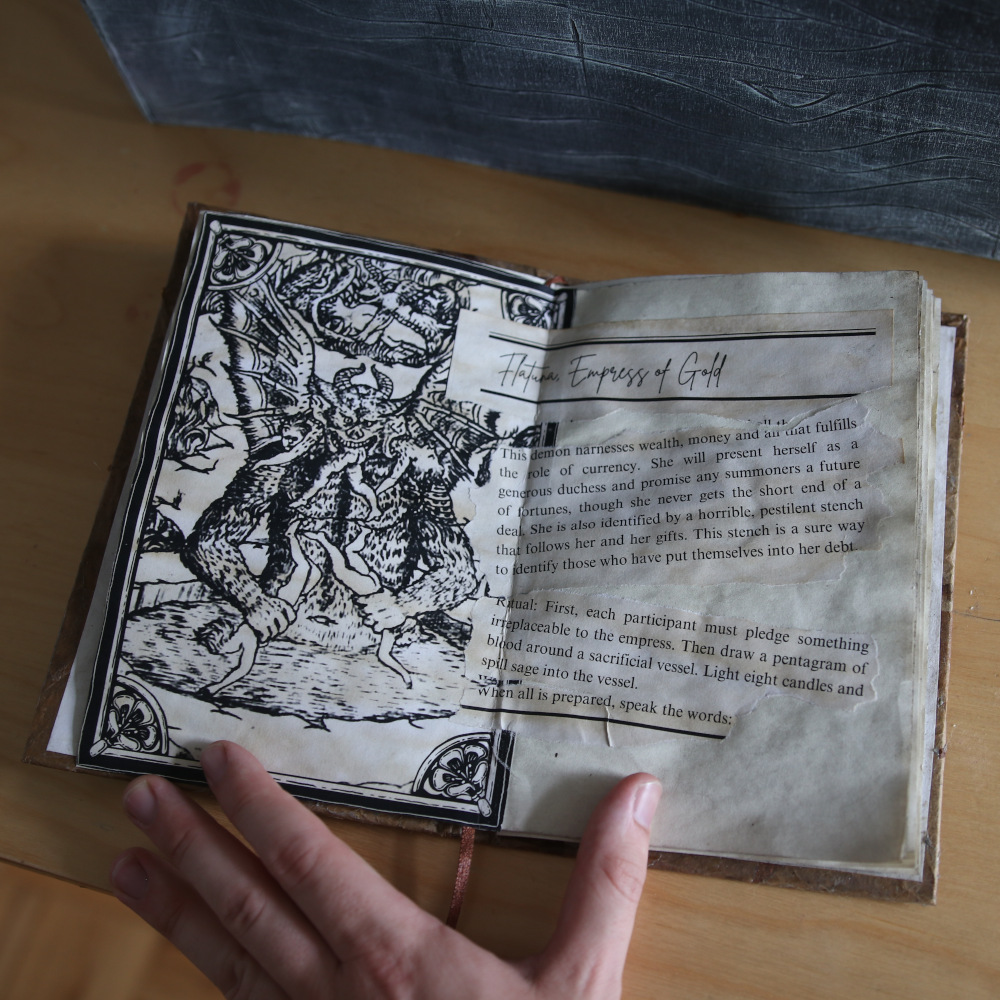 Flatuna, Empress of Gold
This demon narnesses wealth, money and all that fulfills
the role of currency. She will present herself as a
generous duchess and promise any summoners a future
of fortunes, though she never gets the short end of a
deal. She is also identified by a horrible, pestilent stench
that follows her and her gifts. This stench is a sure way
to identify those who have put themselves into her debt.
Ritual: First, each participant must pledge something
irreplaceable to the empress. Then draw a pentagram of
blood around a sacrificial vessel. Light eight candles and
spill sage into the vessel.
When all is prepared, speak the words: